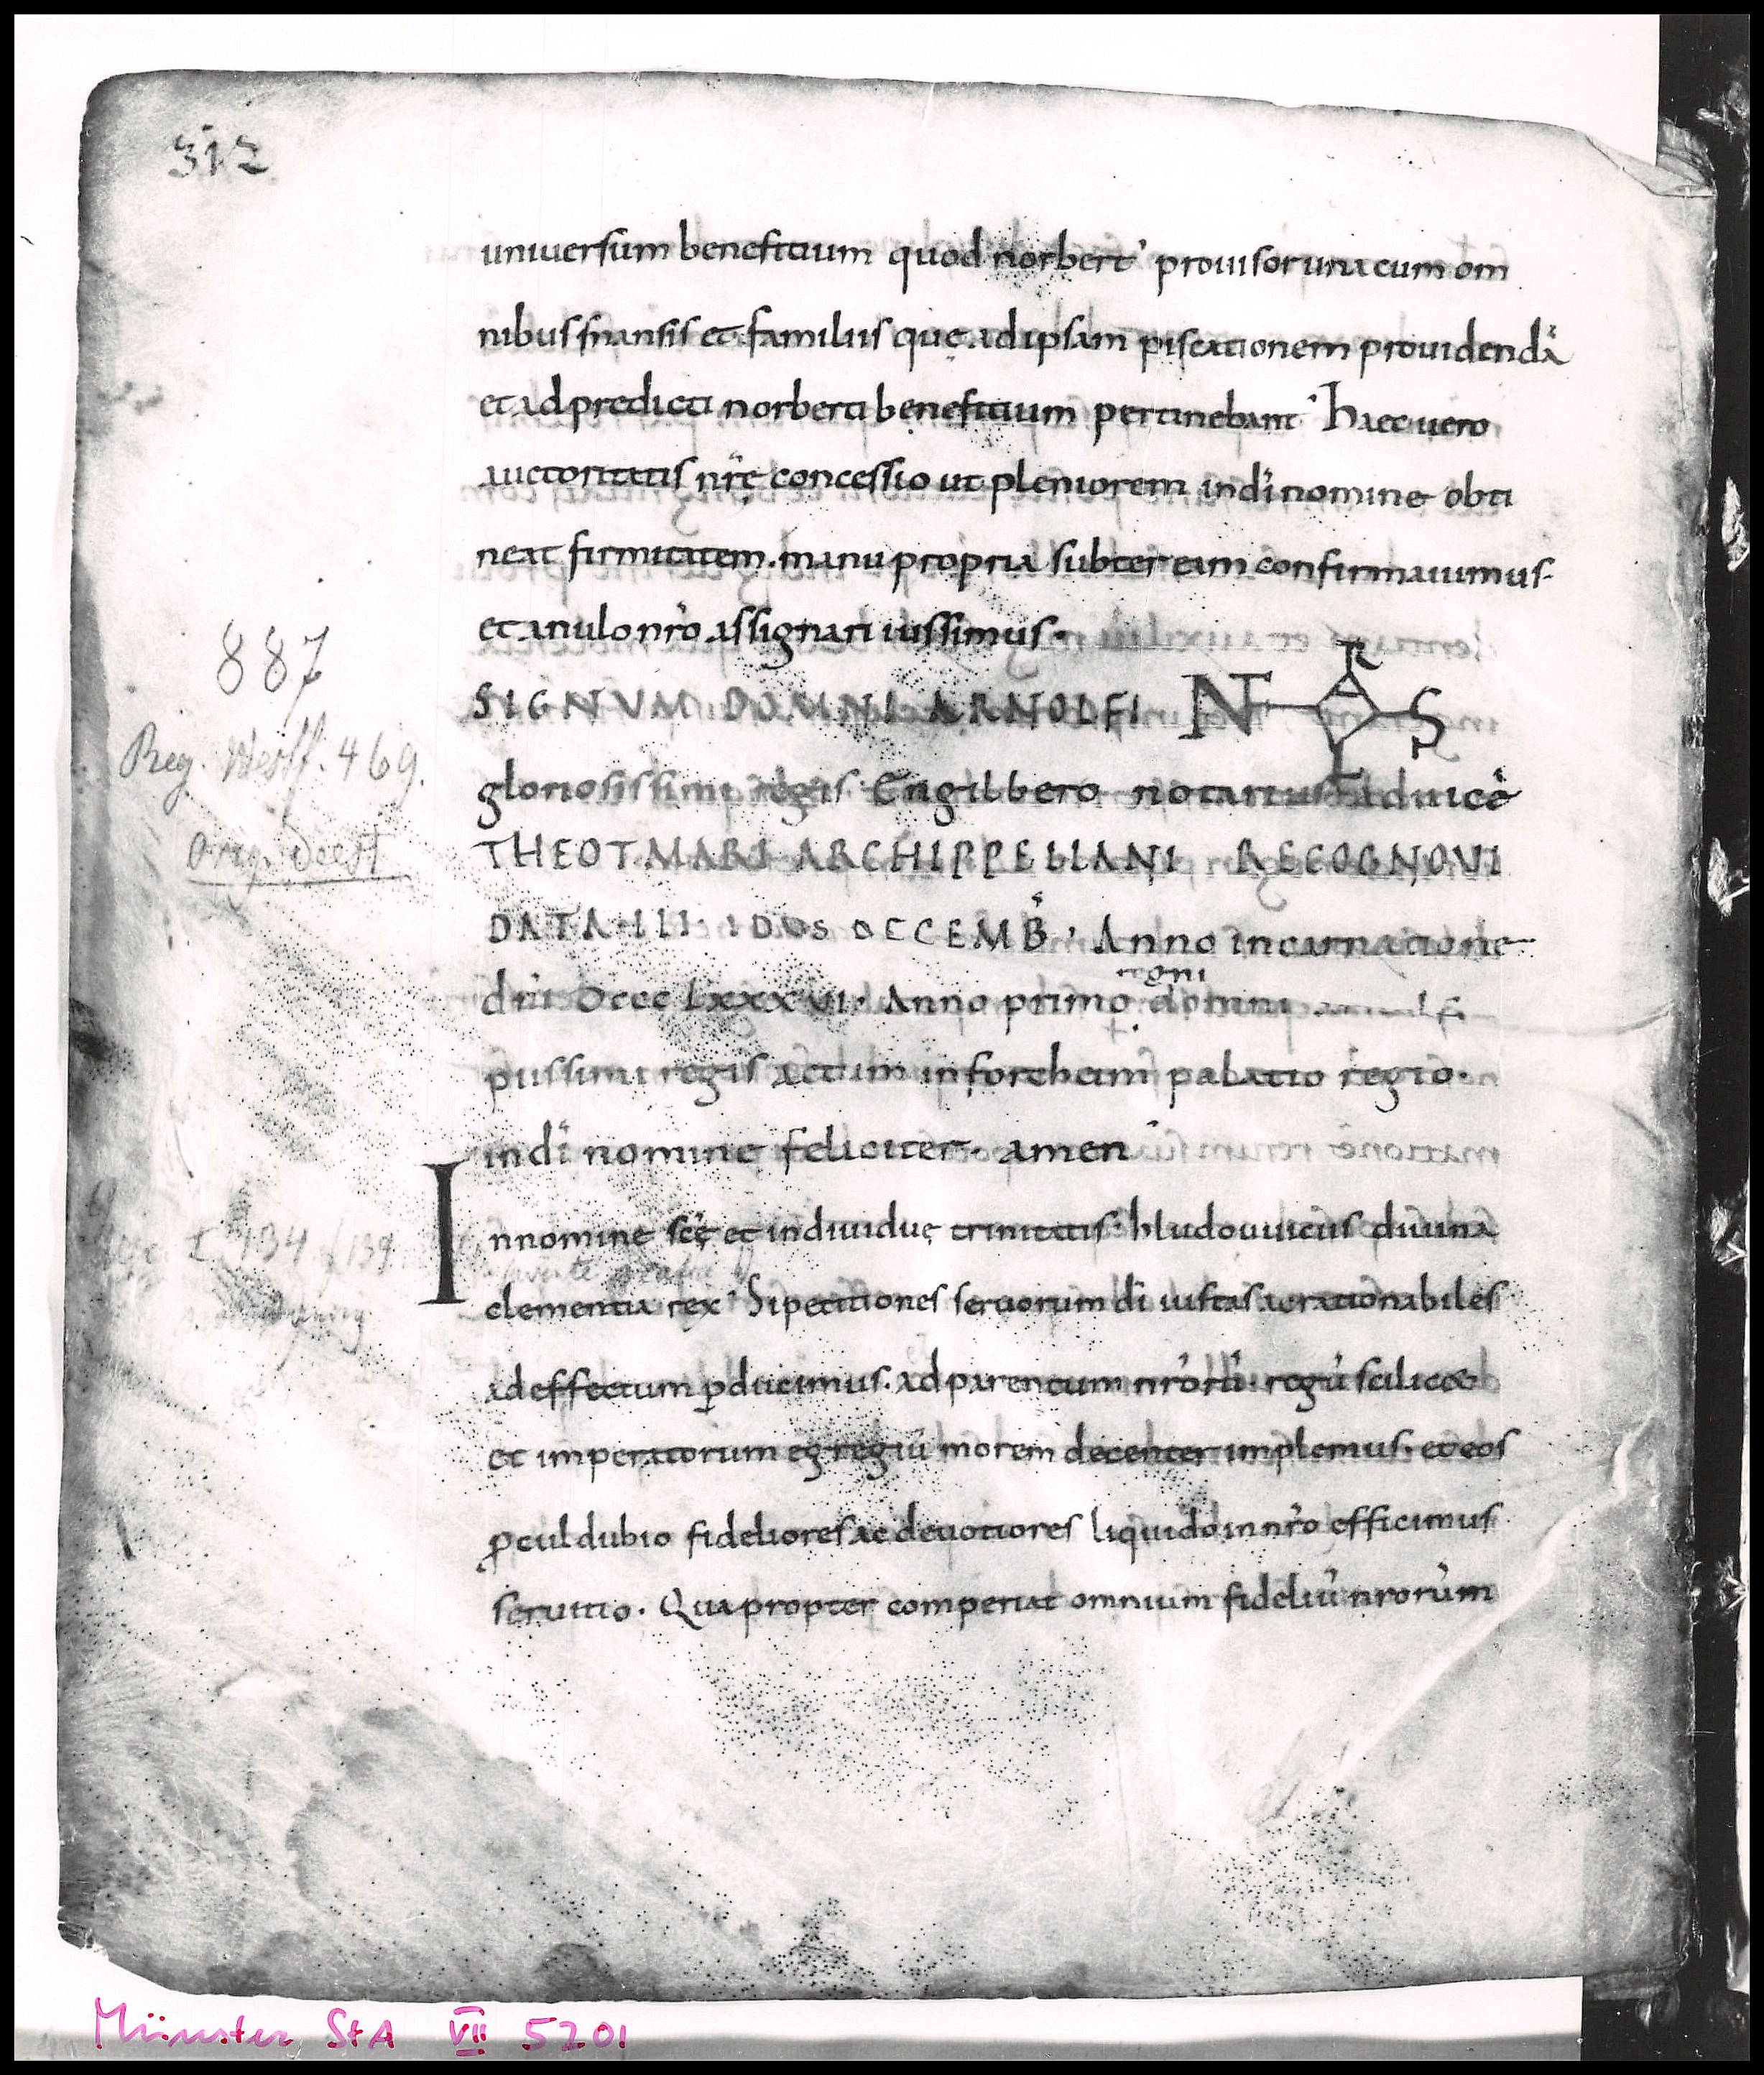 312
uniuersum benefitium quod norbert' prouisor una cum om
nibus mansis et familiis quę ad ipsam piscationem prouidendā
et ad predicti norberti benefitium pertinebant' haec uero
auctoritatis nr̄ę concessio ut pleniorem in dī nomine obti
neat firmitatem. manu propria subter eam confirmauimus.
et anulo nr̄o assignari iussimus.
SIGNVM DOMNI ARNOLFI N R A S L
gloriosissimi regis. Engilbero notarius aduicē
THEOTMARI ARCHIPPELLANI RECOGNOVI
DATA III IDVS DECEMB̄. Anno incarnatione
regni
dn̄i Dccc Lxxxvi. Anno primo domni
piissimi regis actum in forcheim palatio regio.
in dī nomine feliciter. amen
In nomine sc̄ę et indiuiduę trinitatis. hludouuicus diuina
clementia rex' Si petitiones seruorum dī iustas ac rationabiles
ad effectum ꝑducimus. ad parentum nr̄orū. regū scilicet
et imperatorum egregiū morem decenter implemus. et eos
ꝓcul dubio fideliores ac deuotiores liquido in nr̄o efficimus
seruitio. Quapropter comperiat omnium fideliū nrorūm
887
Reg. Westf. 469.
Orig. deest
Münster StA VII 5201